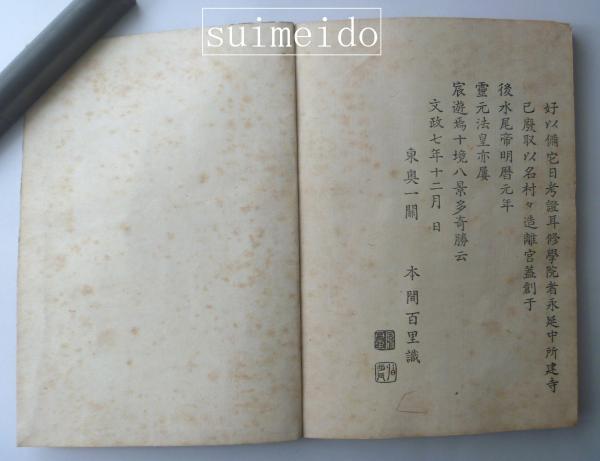 suimeido
好以備它日考證耳修學院者永延中所建寺
已廢取以名村々造離宮蓋創于
後水尾帝明曆元年
靈元法皇亦屢
宸遊焉十境八景多奇勝云
文政七年十二月 日
東奧一關 本間百里識